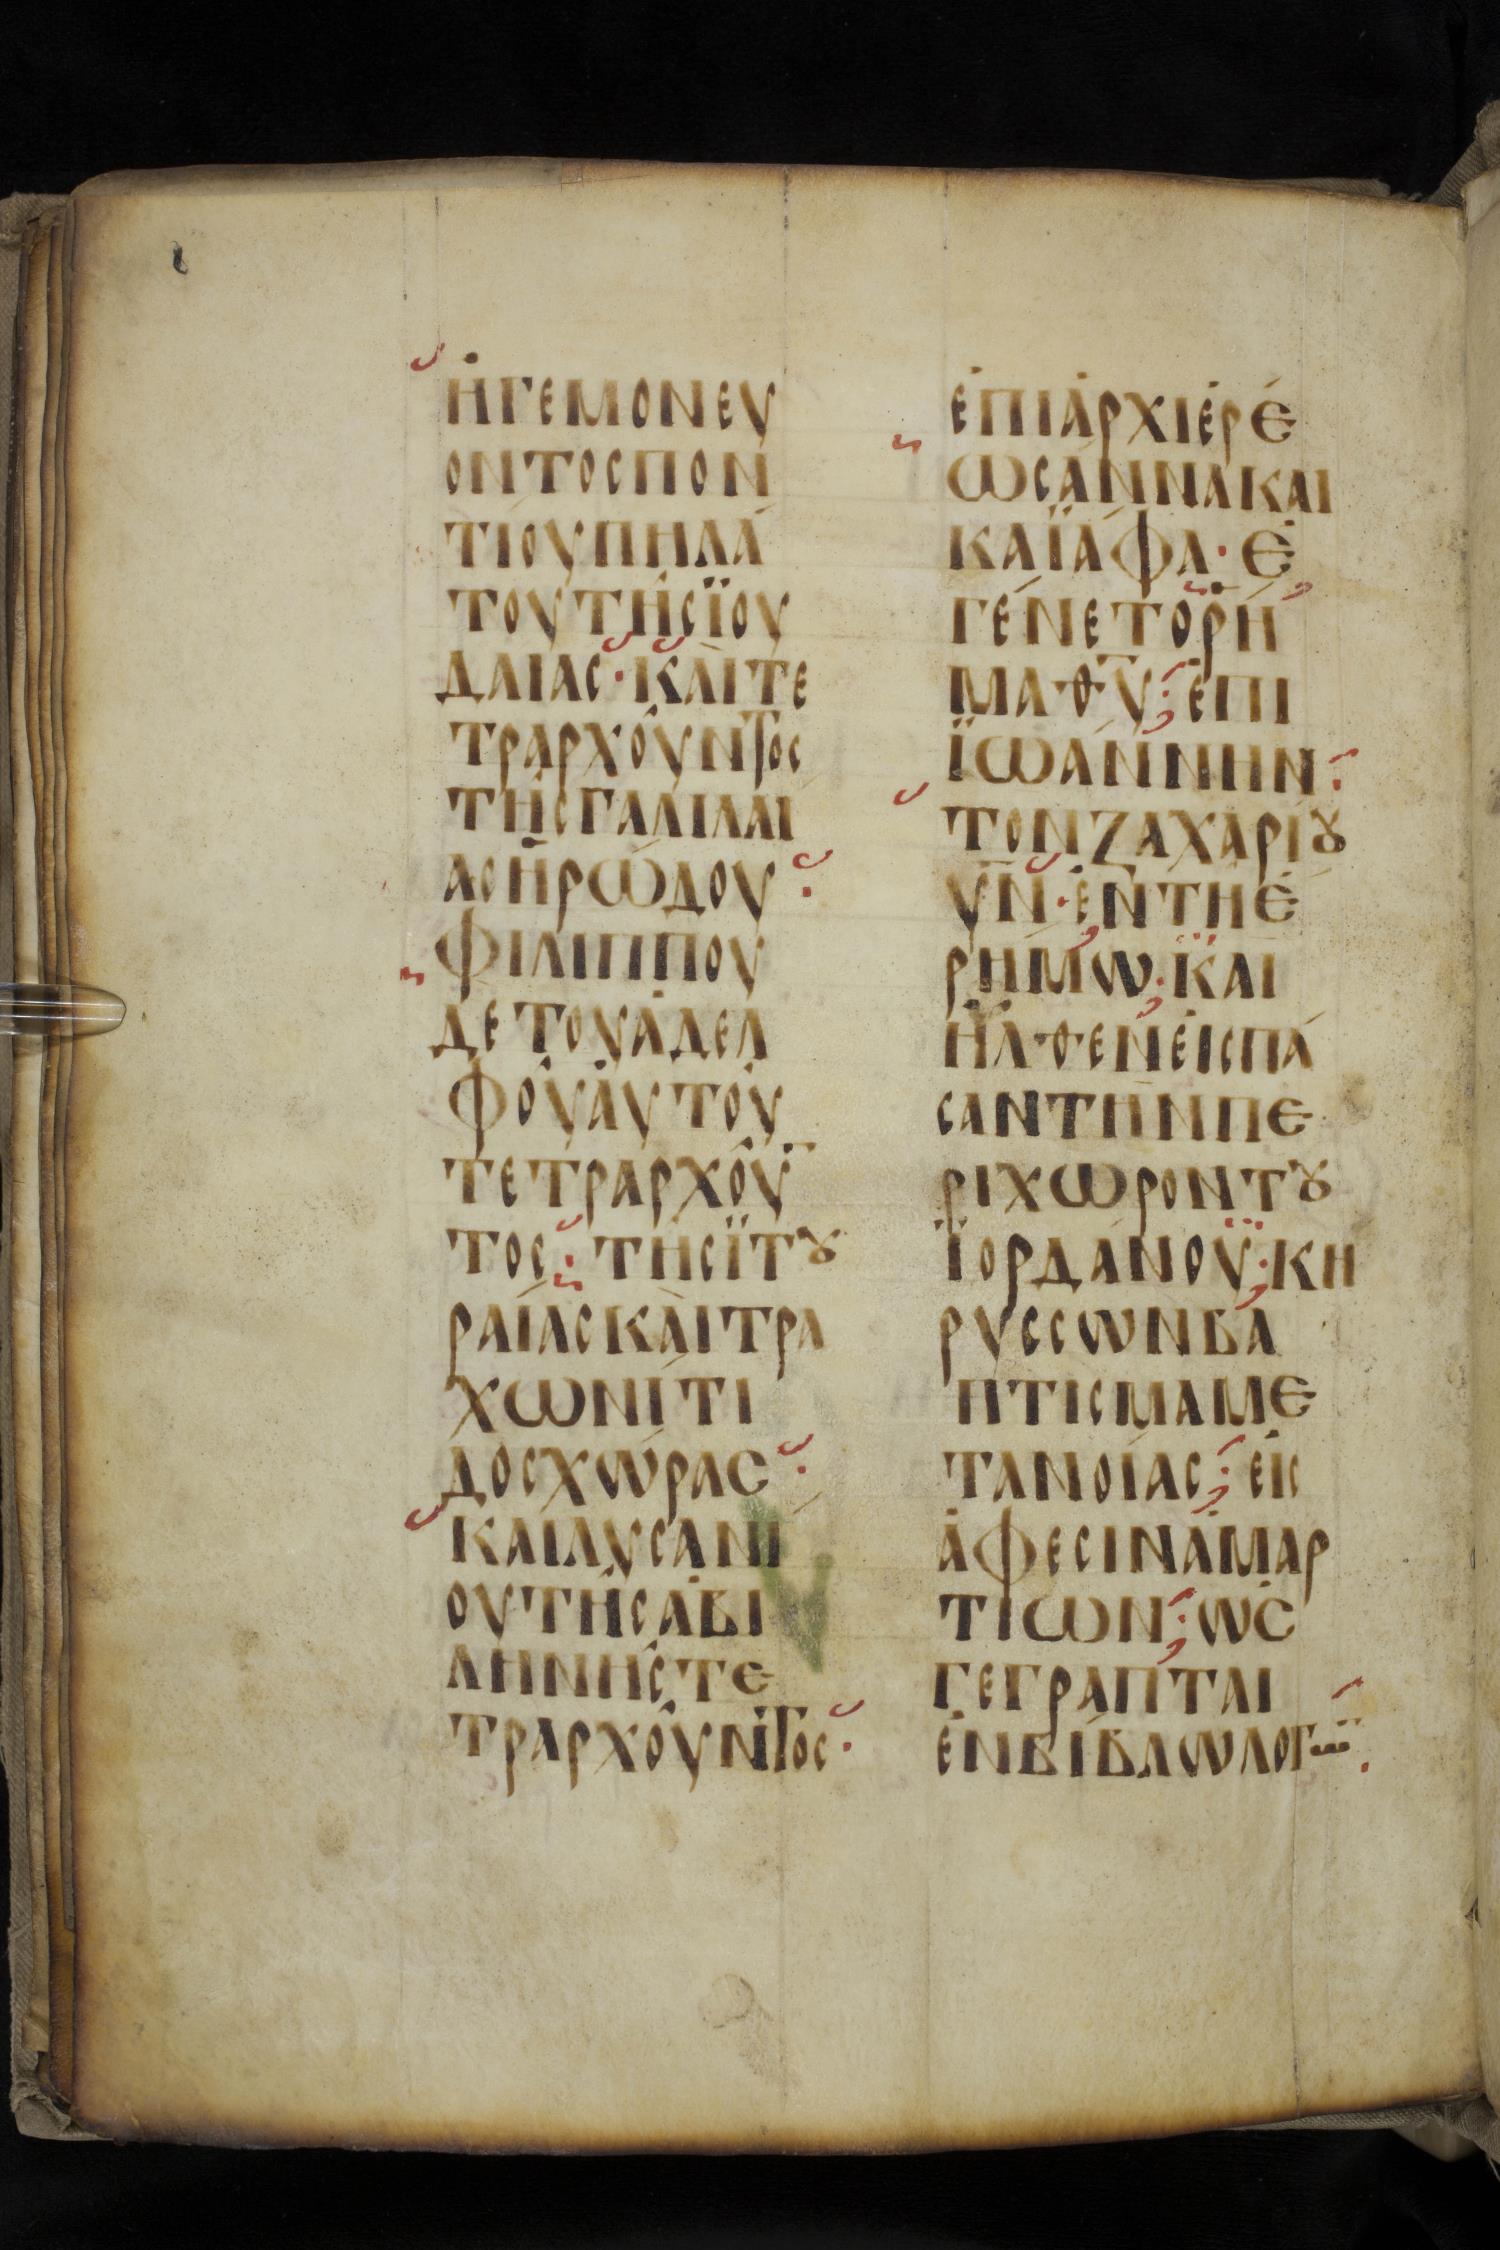 ἩΓΕΜΟΝΕΥ
ΟΝΤΟϹΠΟΝ
ΤΊΟΥΠΗΛΆ
ΤΟΥΤΗϹΪΟΥ
ΔΑΙΑϹ·ΚΑΙΤΕ
ΤΡΑΡΧΟΥΝΤΟϹ
ΤΗϹΓΑΛΙΛΑΙ
ΑϹΗΡΩΔΟΥ·
ΦΙΛΙΠΠΟΥ
ΔΕΤΟΥΑΔΕΛ
ΦΟΥΑΥΤΟΥ
ΤΕΤΡΑΡΧΟΥ̅
ΤΟϹ·ΤΗϹΪΤȢ
ΡΑΙΑϹΚΑΙΤΡΑ
ΧΩΝΙΤΙ
ΔΟϹΧΩΡΑϹ·
ΚΑΙΛΥϹΑΝΙ
ΟΥΤΗϹΑΒΙ
ΛΗΝΗϹΤΕ
ΤΡΑΡΧΟΥΝΤΟϹ·
ΕΠΙΑΡΧΙΕΡΕ
ΩϹΑΝΝΑΚΑΙ
ΚΑΪΑΦΑ·Ε
ΓΕΝΕΤΟΡΗ
ΜΑΘ̅Υ̅·ΕΠΙ
ΪΩΑΝΝΗΝ·
ΤΟΝΖΑΧΑΡΙȢ
Υ̅Ν̅·ΕΝΤΗΕ
ΡΗΜΩ·ΚΑΙ
ΗΛΘΕΝΕΙϹΠΑ
ϹΑΝΤΗΝΠΕ
ΡΙΧΩΡΟΝΤȢ
ΪΟΡΔΑΝΟΥ·ΚΗ
ΡΥϹϹΩΝΒΑ
ΠΤΙϹΜΑΜΕ
ΤΑΝΟΙΑϹ·ΕΙϹ
ΑΦΕϹΙΝΑΜΑΡ
ΤΙΩΝ·ΩϹ
ΓΕΓΡΑΠΤΑΙ
ΕΝΒΙΒΛΩΛΟΓΩ̅·